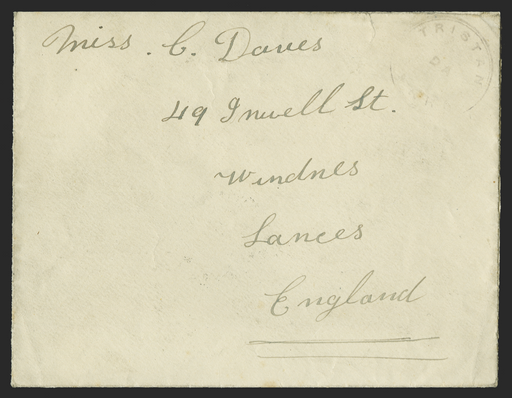 Miss. C. Daves
TRISTAN
49 Inwell St.
Windnes
Lances
England